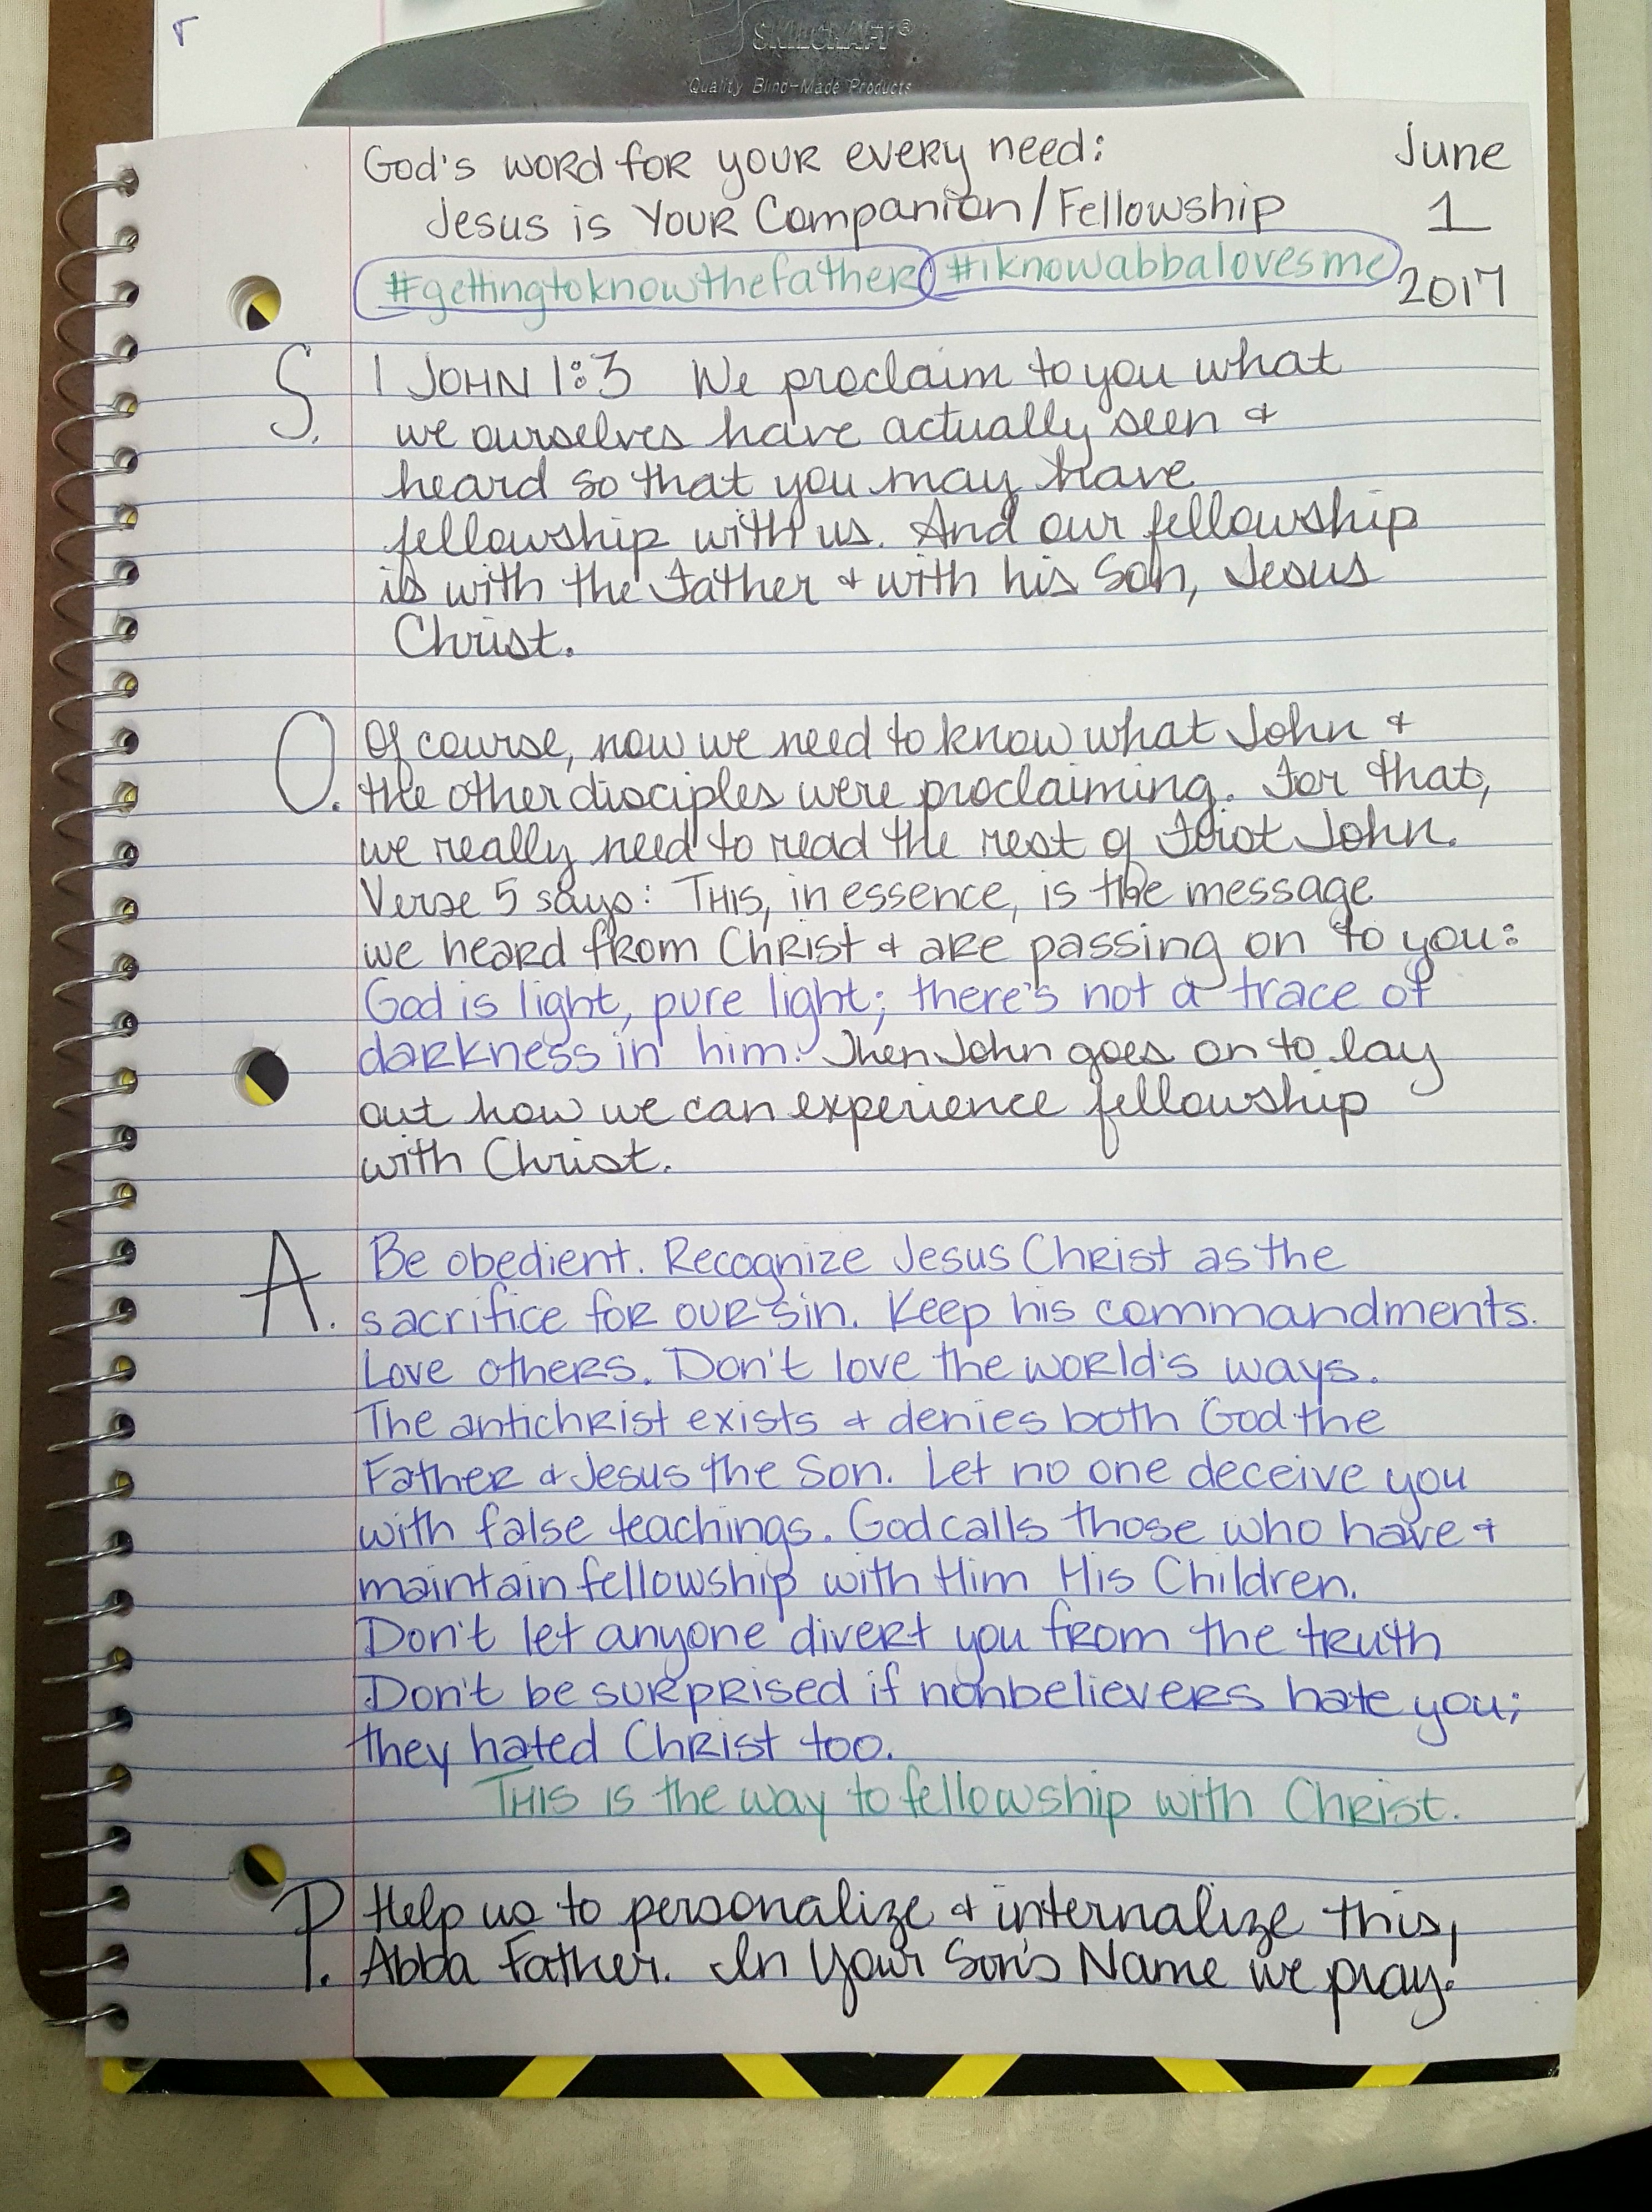 SKILCRAFT®
Quality Blind-Made Products
God's word for your every need:
Jesus is Your Companion/Fellowship
June
1
2017
#gettingtoknowthefather #iknowabbalovesme
S. 1 John 1:3 We proclaim to you what
we ourselves have actually seen &
heard so that you may have
fellowship with us. And our fellowship
is with the Father & with his Son, Jesus
Christ.
O. Of course, now we need to know what John &
the other disciples were proclaiming. For that,
we really need to read the rest of First John.
Verse 5 says: This, in essence, is the message
we heard from Christ & are passing on to you:
God is light, pure light; there's not a trace of
darkness in him. Then John goes on to lay
out how we can experience fellowship
with Christ.
A. Be obedient. Recognize Jesus Christ as the
sacrifice for our sin. Keep his commandments.
Love others. Don't love the world's ways.
The antichrist exists & denies both God the
Father & Jesus the Son. Let no one deceive you
with false teachings. God calls those who have &
maintain fellowship with Him His Children.
Don't let anyone divert you from the truth
Don't be surprised if nonbelievers hate you;
they hated Christ too.
This is the way to fellowship with Christ.
P. Help us to personalize & internalize this,
Abba Father. In Your Son's Name we pray.